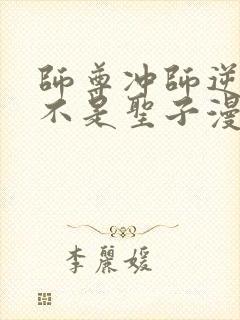 師尊冲師逆
不是聖子漫
李麗媛